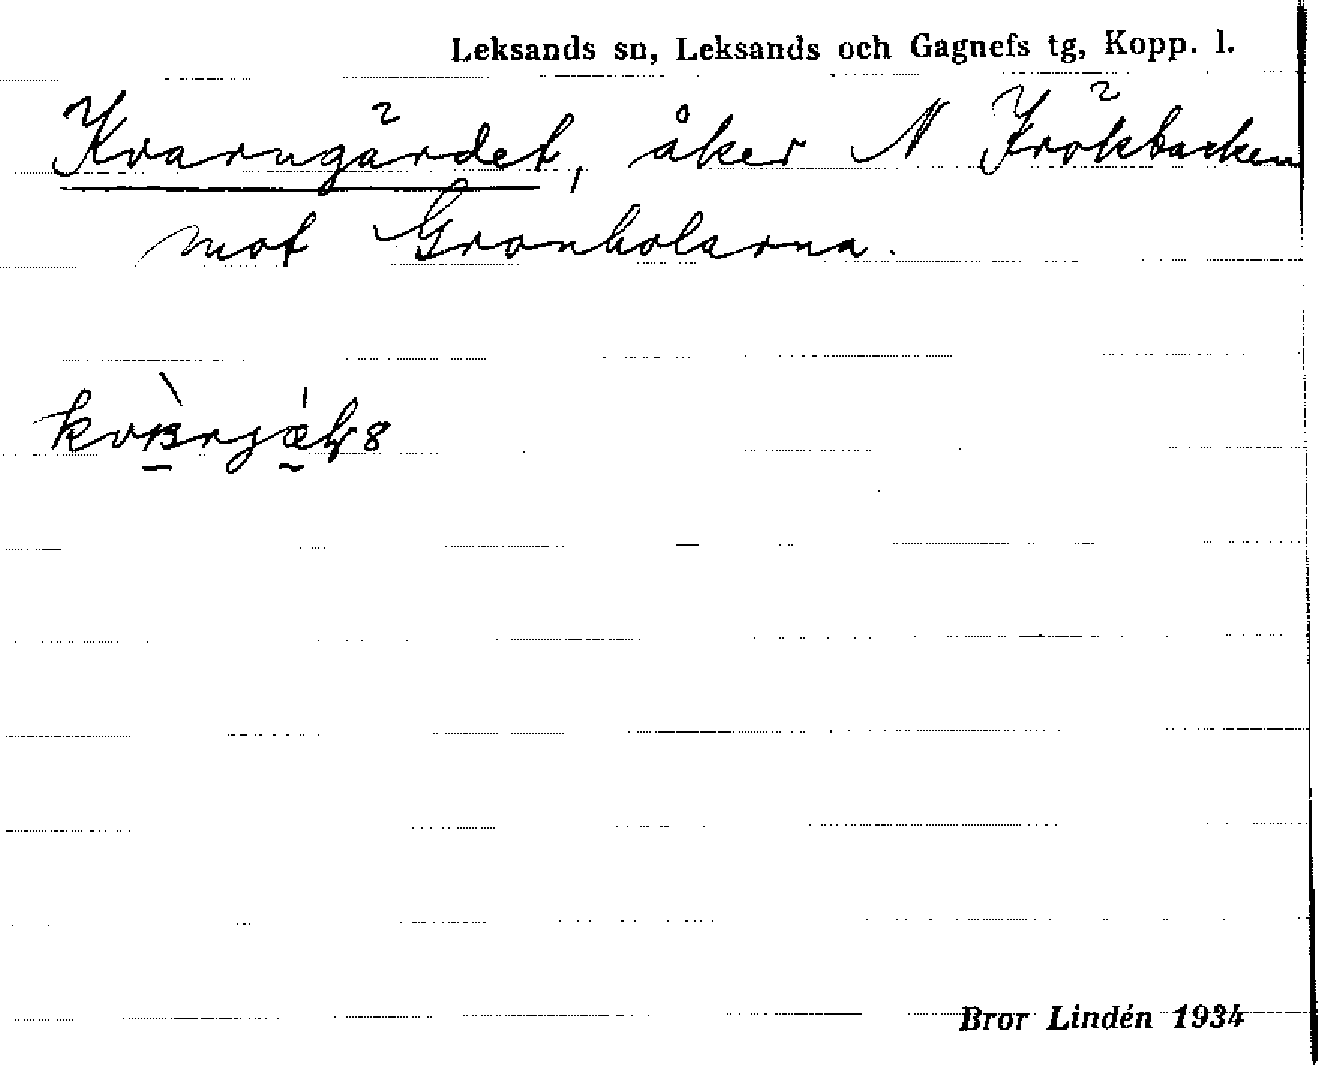 Leksands sn, Leksands och Gagnefs tg, Kopp. l.
Kvarngärdet, åker N Krökbacken
mot Granholarna.
Bror Lindén 1934